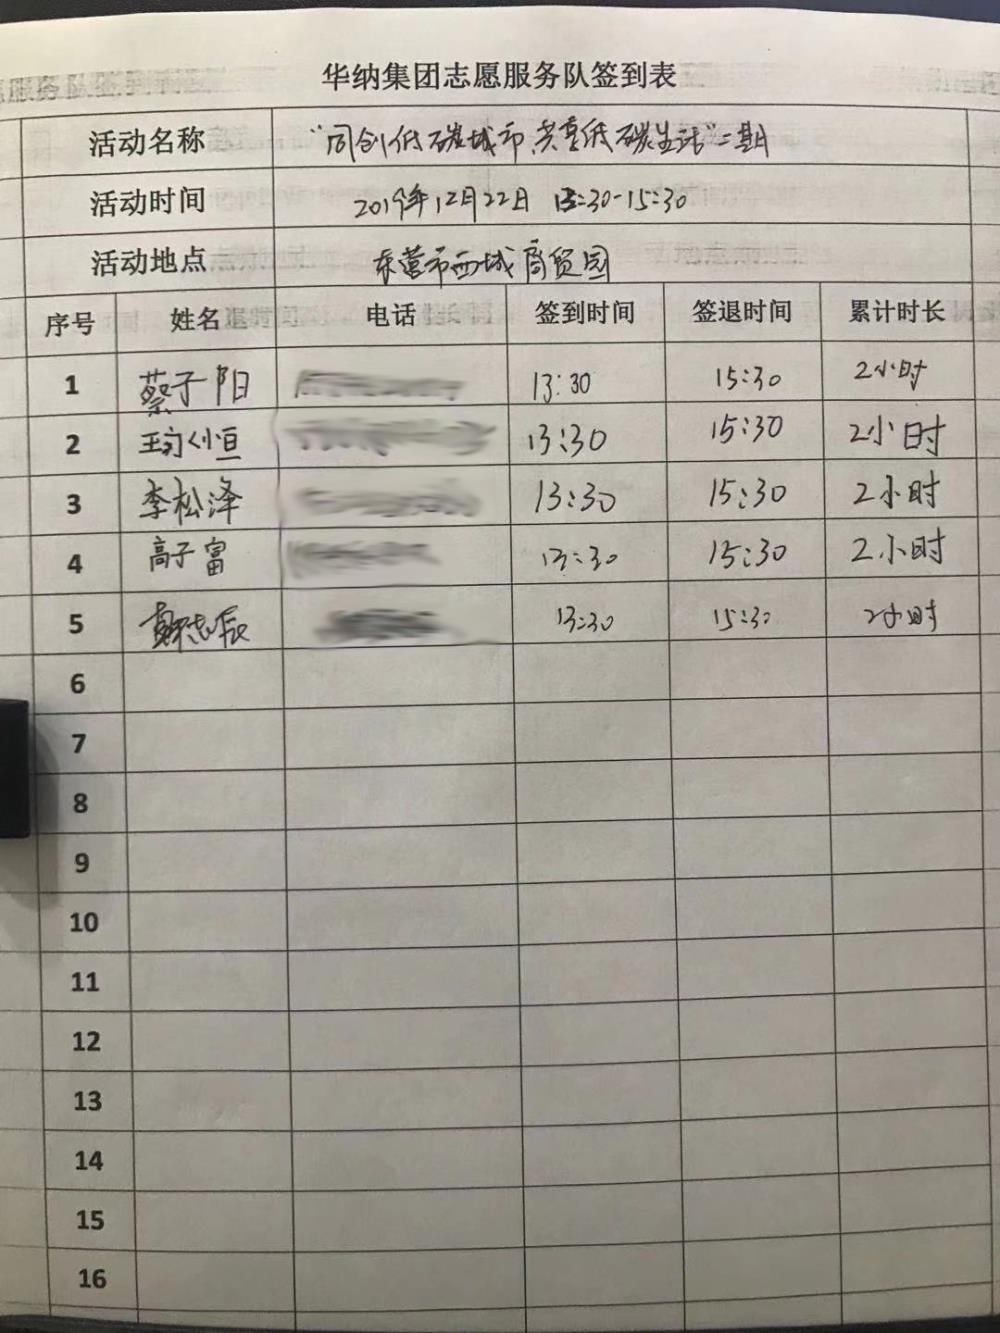 华纳集团志愿服务队签到表
活动名称 "同创低碳城市 共享低碳生活"二期
活动时间 2019年12月22日 13:30-15:30
活动地点 东营市西城商贸园
序号 姓名 电话 签到时间 签退时间 累计时长
1 蔡子阳 13:30 15:30 2小时
2 13:30 15:30 2小时
3 李松泽 13:30 15:30 2小时
4 高子富 13:30 15:30 2小时
5 13:30 15:30 2小时
6
7
8
9
10
11
12
13
14
15
16